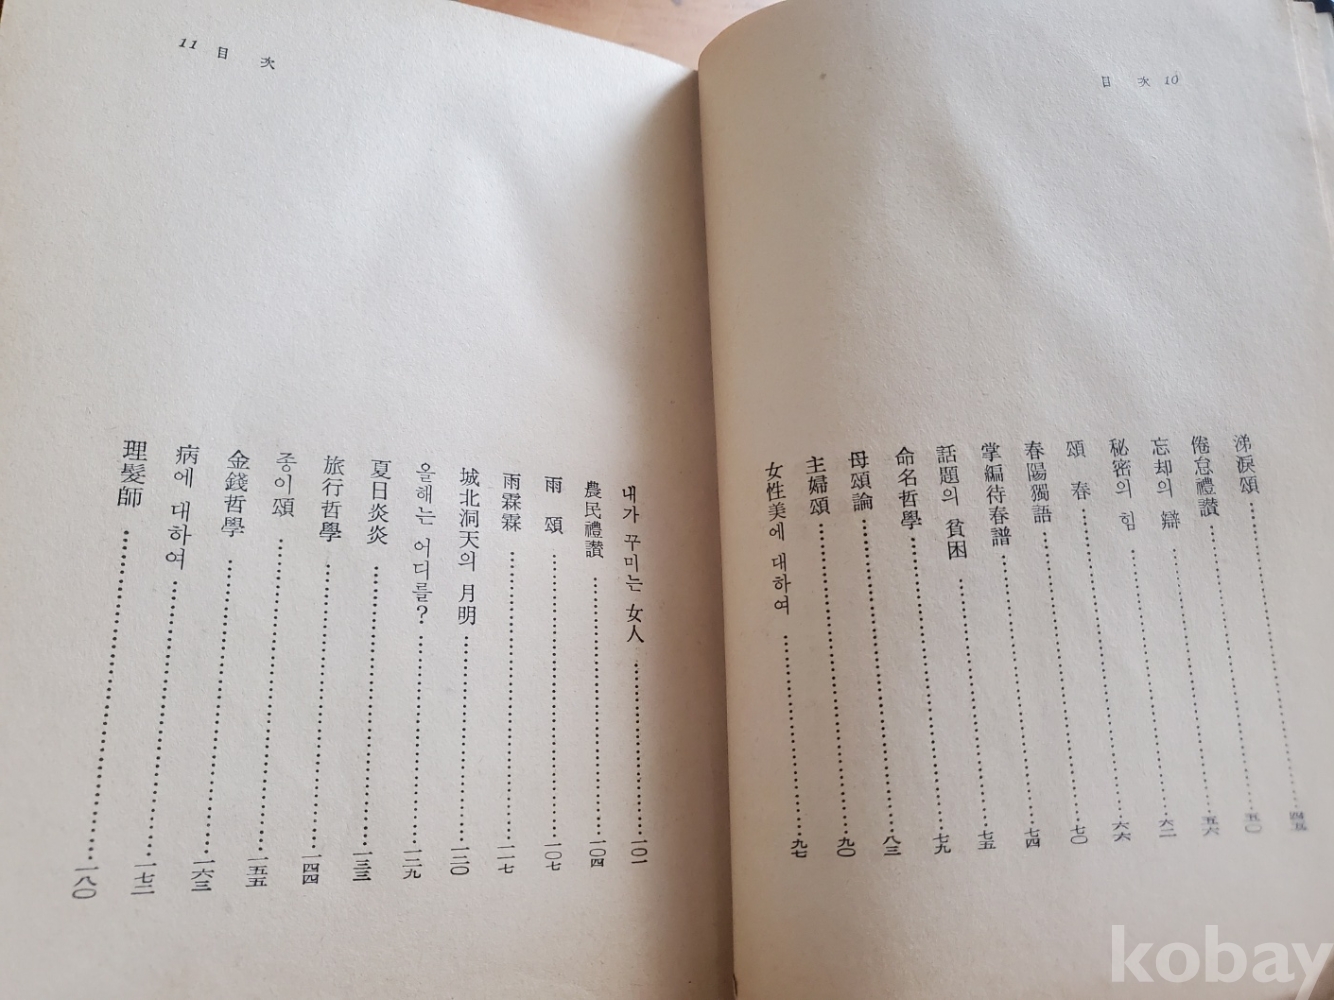 目次 10
涕淚頌……四五
倦怠禮讃……五〇
忘却의 辯……五六
秘密의 힘……六二
頌春……六六
春陽獨語……七〇
掌編待春譜……七四
話題의 貧困……七五
命名哲學……七九
母頌論……八三
主婦頌……九〇
女性美에 대하여……九七
11 目次
내가 꾸미는 女人……一〇一
農民禮讃……一〇四
雨頌……一〇七
雨霖霖……一一七
城北洞天의 月明……一二〇
올해는 어디를?……一二九
夏日炎炎……一三三
旅行哲學……一四四
종이頌……一五五
金錢哲學……一六三
病에 대하여……一七二
理髮師……一八〇
kobay